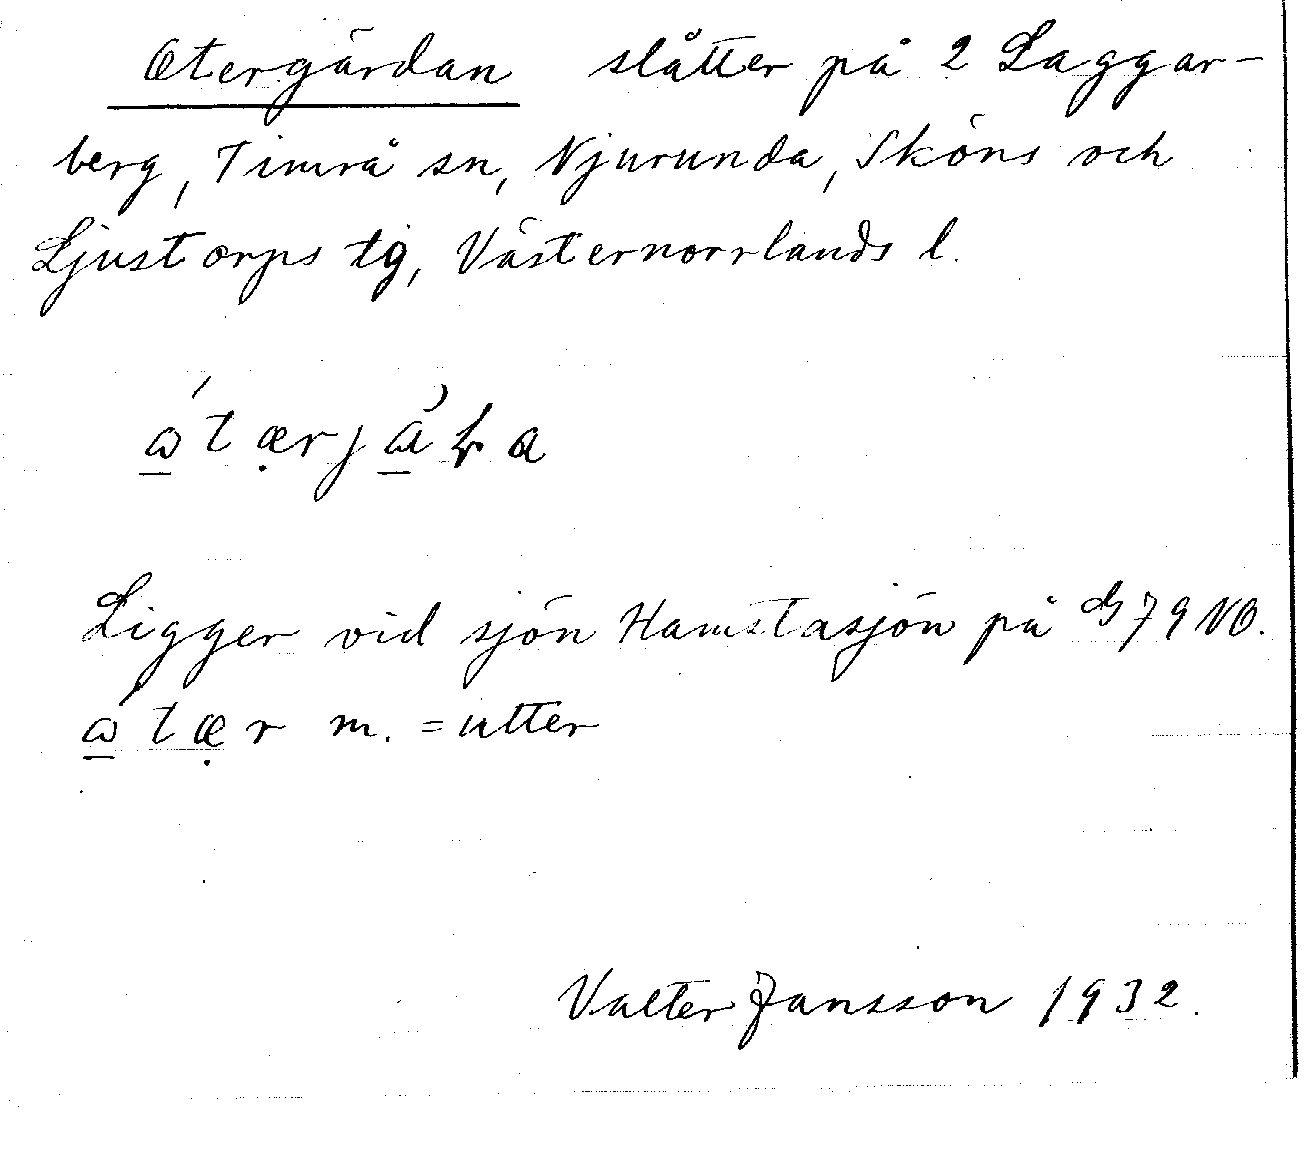 Otergärdan slåtter på 2 Laggar-
berg, Timrå sn, Njurunda, Sköns och
Ljustorps tg, Västernorrlands l.
Ligger vid sjön Hamstasjön på 79 NO.
m. = utter
Valter Jansson 1932.